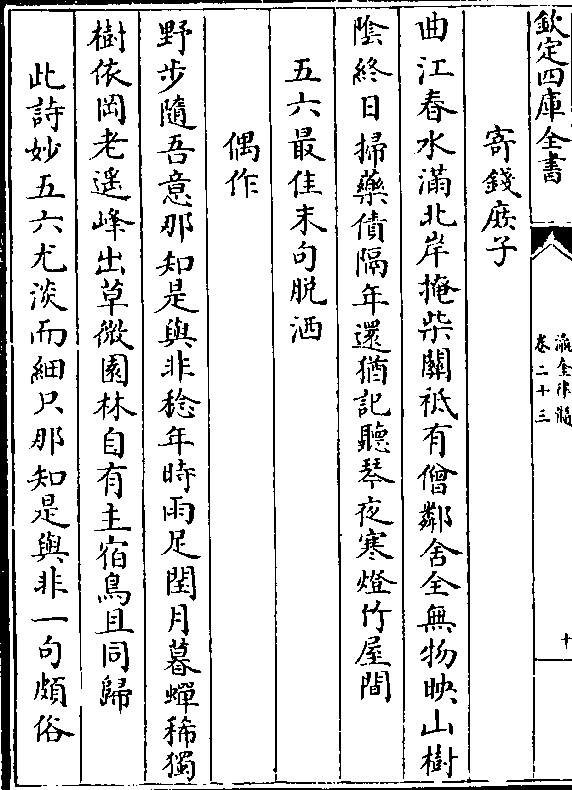 欽定四庫全書
瀛奎律髓
卷二十三
十
寄錢庻子
曲江春水滿北岸掩柴關秪有僧鄰舍全無物映山樹
隂終日掃藥債隔年還猶記聽琴夜寒燈竹屋間
五六最佳末句脱洒
偶作
野步隨吾意那知是與非稔年時雨足閏月暮蟬稀獨
樹依岡老遥峰出草微園林自有主宿鳥且同歸
此詩妙五六尤淡而細只那知是與非一句頗俗